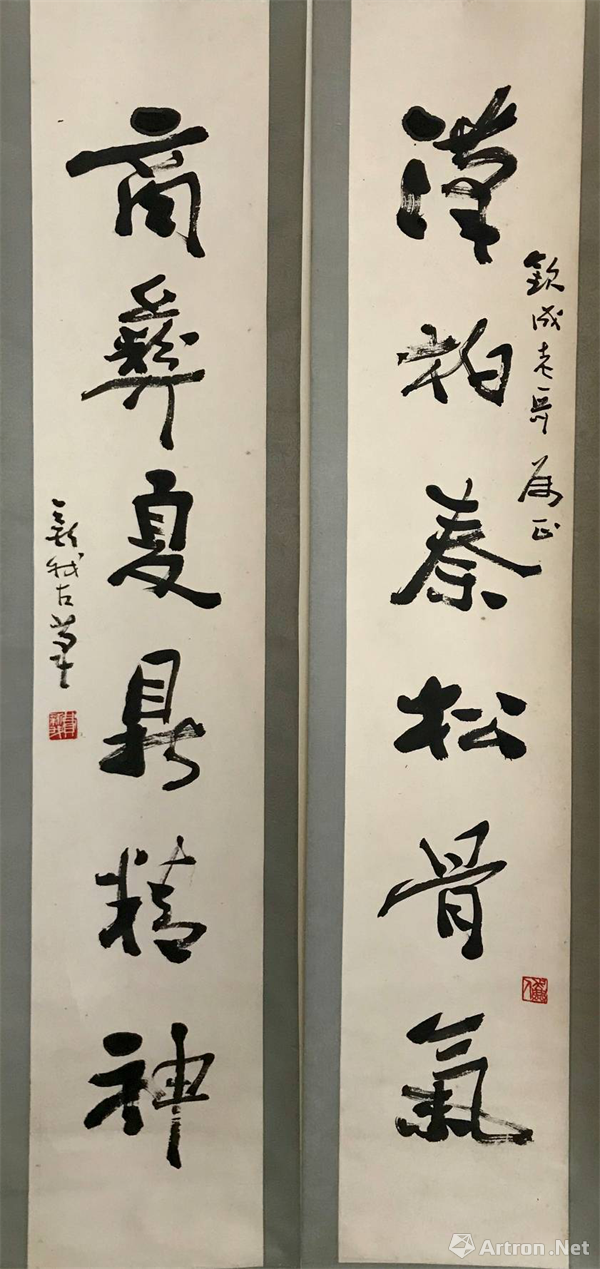 漢柏秦松骨氣
欽成老哥 属正
商彝夏鼎精神
新我左筆
Artron.Net